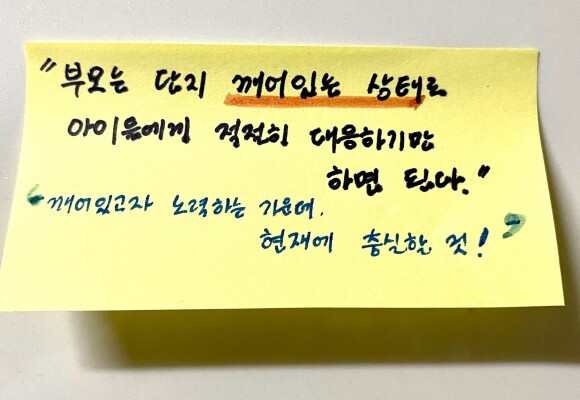 "부모는 단지 깨어있는 상태로
아이들에게 적절히 대응하기만
하면 된다."
'깨어있고자 노력하는 가운데,
현재에 충실할 것!'